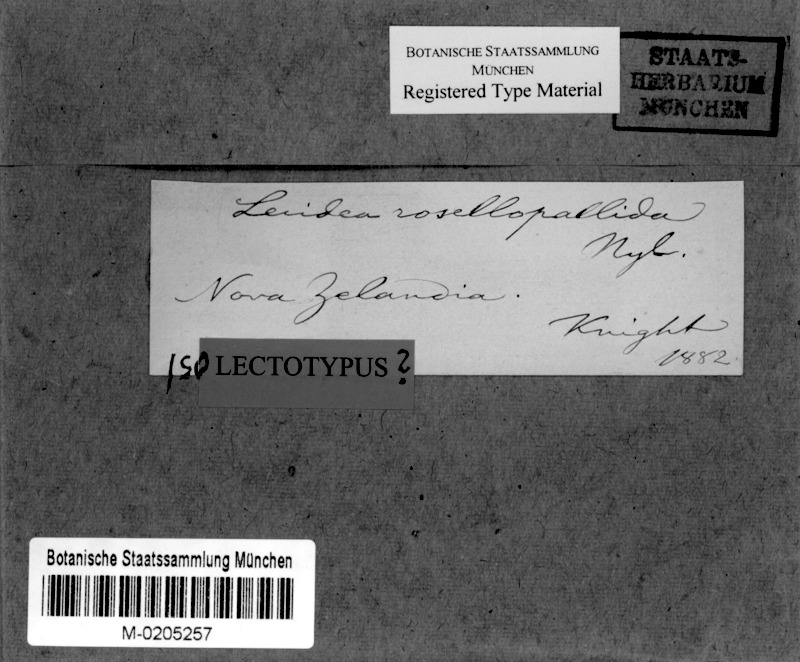 BOTANISCHE STAATSSAMMLUNG
MÜNCHEN
Registered Type Material
STAATS-
HERBARIUM
MÜNCHEN
Lecidea rosellopallida
Nyl.
Nova Zelandia.
Knight
1882
LECTOTYPUS ?
Botanische Staatssammlung München
M-0205257